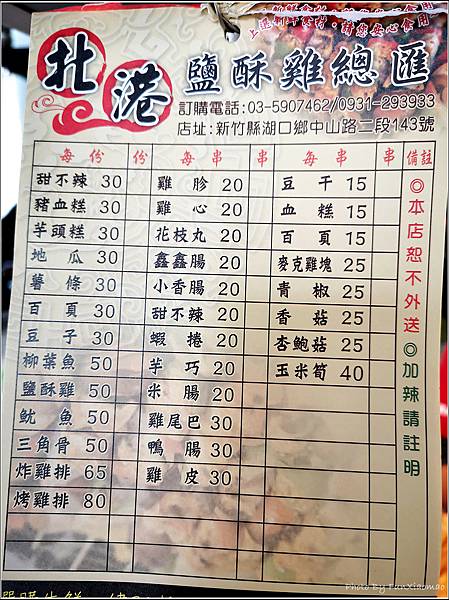 上選新鮮食材，請您安心食用
北港 鹽酥雞總匯
訂購電話:03-5907462/0931-293933
店址:新竹縣湖口鄉中山路二段143號
每份 份 每串 串 每串 串 備註
甜不辣 30 雞胗 20 豆干 15
豬血糕 30 雞心 20 血糕 15
芋頭糕 30 花枝丸 20 百頁 15
地瓜 30 鑫鑫腸 20 麥克雞塊 25
薯條 30 小香腸 20 青椒 25
百頁 30 甜不辣 20 香菇 25
豆子 30 蝦捲 20 杏鮑菇 25
柳葉魚 50 芋巧 20 玉米筍 40
鹽酥雞 50 米腸 20
魷魚 50 雞尾巴 30
三角骨 50 鴨腸 30
炸雞排 65 雞皮 30
烤雞排 80
◎本店恕不外送◎加辣請註明
Photo By FunXiaomao